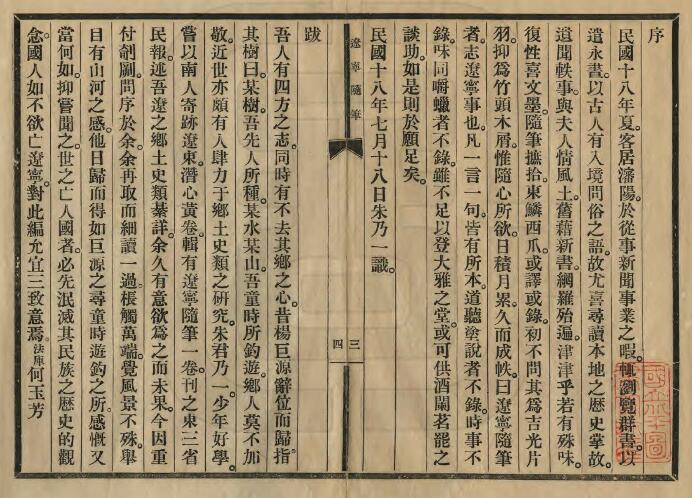 序
民國十八年夏。客居瀋陽。於從事新聞事業之暇。輒劉覽羣書。以
遣永晝。以古人有入境問俗之語。故尤喜尋讀本地之歷史掌故。
遺聞軼事。與夫人情風土。舊藉新書。網羅殆遍。津津乎若有殊味。
復性喜文墨。隨筆摭拾。東鱗西爪。或譯或錄。初不問其爲吉光片
羽。抑爲竹頭木屑。惟隨心所欲。日積月累。久而成帙。曰遼寧隨筆
者。志遼寧事也。凡一言一句。皆有所本。道聽塗說者不錄。時事不
錄。味同嚼蠟者不錄。雖不足以登大雅之堂。或可供酒闌茗罷之
談助。如是則於願足矣。
民國十八年七月十八日朱乃一識
遼寧隨筆
三
四
跋
吾人有四方之志。同時有不去其鄉之心。昔楊巨源辭位而歸。指
其樹曰。某樹。吾先人所種。某水某山。吾童時所釣遊。鄉人莫不加
敬。近世亦頗有人肆力于鄉土史類之研究。朱君乃一。少年好學。
嘗以南人寄跡遼東。潛心黃卷。輯有遼寧隨筆一卷。刊之東三省
民報。述吾遼之鄉土史類綦詳。余久有意欲爲之而未果。今因重
付剞劂。問序於余。余再取而細讀一過。棖觸萬端。覺風景不殊。舉
目有山河之感。他日歸而得如巨源之尋童時遊釣之所。感慨又
當何如。抑嘗聞之。世之亡人國者。必先泯滅其民族之歷史的觀
念。國人如不欲亡遼寧。對此編允宜三致意焉。法庫何玉芳